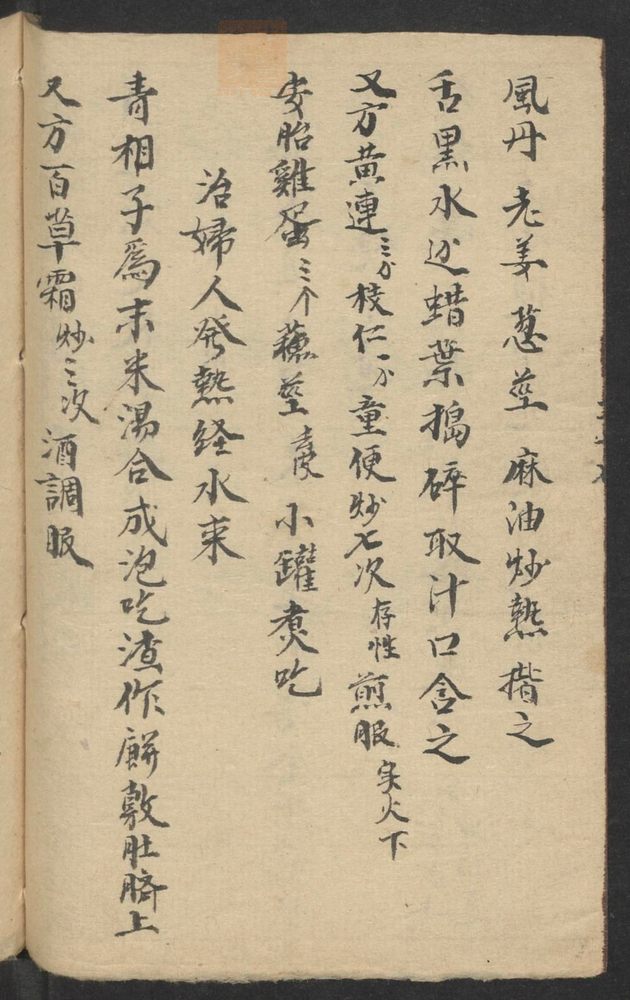 風丹 老姜 葱莖 麻油炒熱揩之
舌黑水边蜡葉搗碎取汁口含之
又方黄連三分枝仁一分童便炒七次存性煎服实火下
安胎雞蛋三个蘓莖去皮小罐煮吃
治婦人發熱経水来
青相子爲末米湯合成泡吃渣作餅敷肚臍上
又方百草霜炒三次酒調服